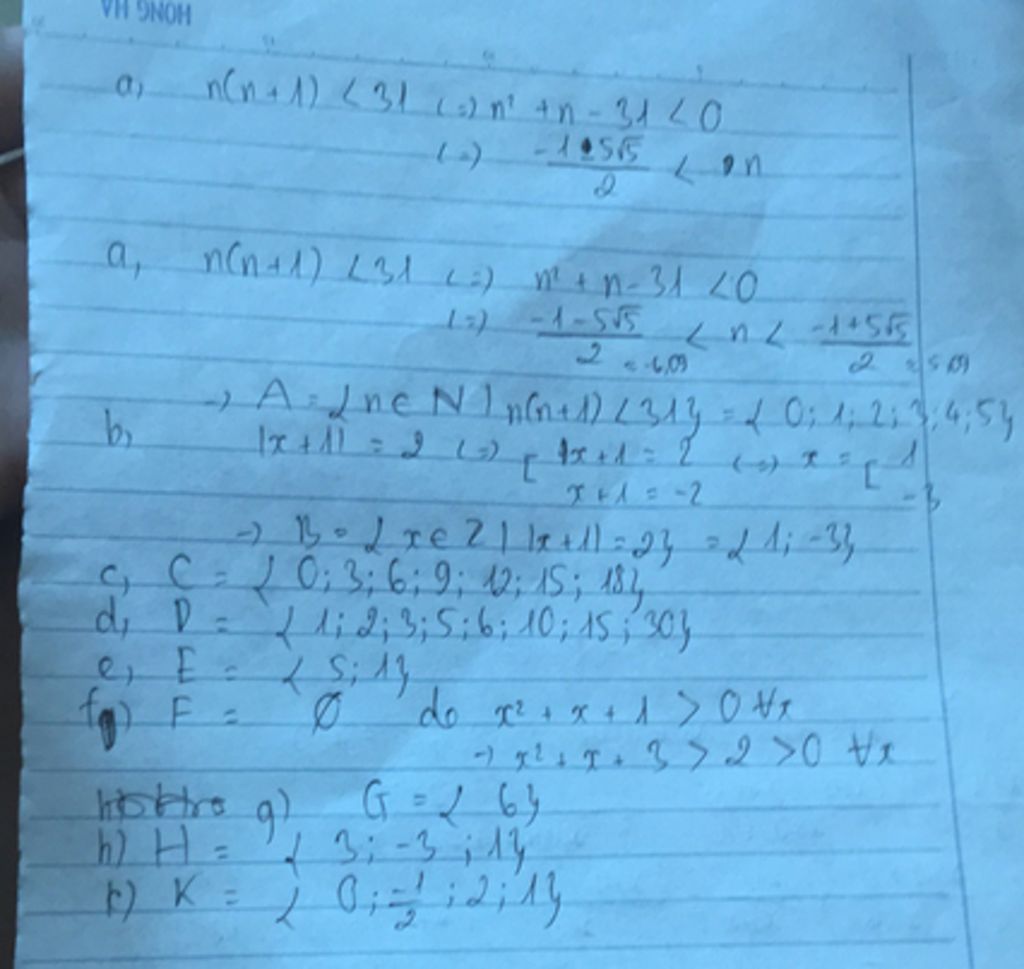 HONG HA
a, n(n+1) < 31 (=) n² + n - 31 < 0
(=) -1 5√5 / 2 < n
a, n(n+1) < 31 (=) n² + n - 31 < 0
(=) (-1-5√5)/2 ≈ -6,09 < n < (-1+5√5)/2 ≈ 5,09
→ A = { n ∈ N | n(n+1) < 31 } = { 0; 1; 2; 3; 4; 5 }
b, |x+1| = 2 (=) [ x+1 = 2 (=) x = [ 1
x+1 = -2 -3
→ B = { x ∈ Z | |x+1| = 2 } = { 1; -3 }
c, C = { 0; 3; 6; 9; 12; 15; 18 }
d, D = { 1; 2; 3; 5; 6; 10; 15; 30 }
e, E = { 5; 1 }
f) F = Ø do x² + x + 1 > 0 ∀x
→ x² + x + 3 > 2 > 0 ∀x
g) G = { 6 }
h) H = { 3; -3; 1 }
k) K = { 0; -1/2; 2; 1 }